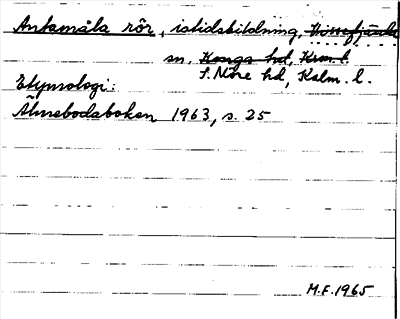 Ankamåla rör, istidsbildning, Vissefjärda
sn. Konga hd, Kron. l.
S. Möre hd, Kalm. l.
Etymologi:
Älmebodaboken 1963, s. 25
M.F. 1965